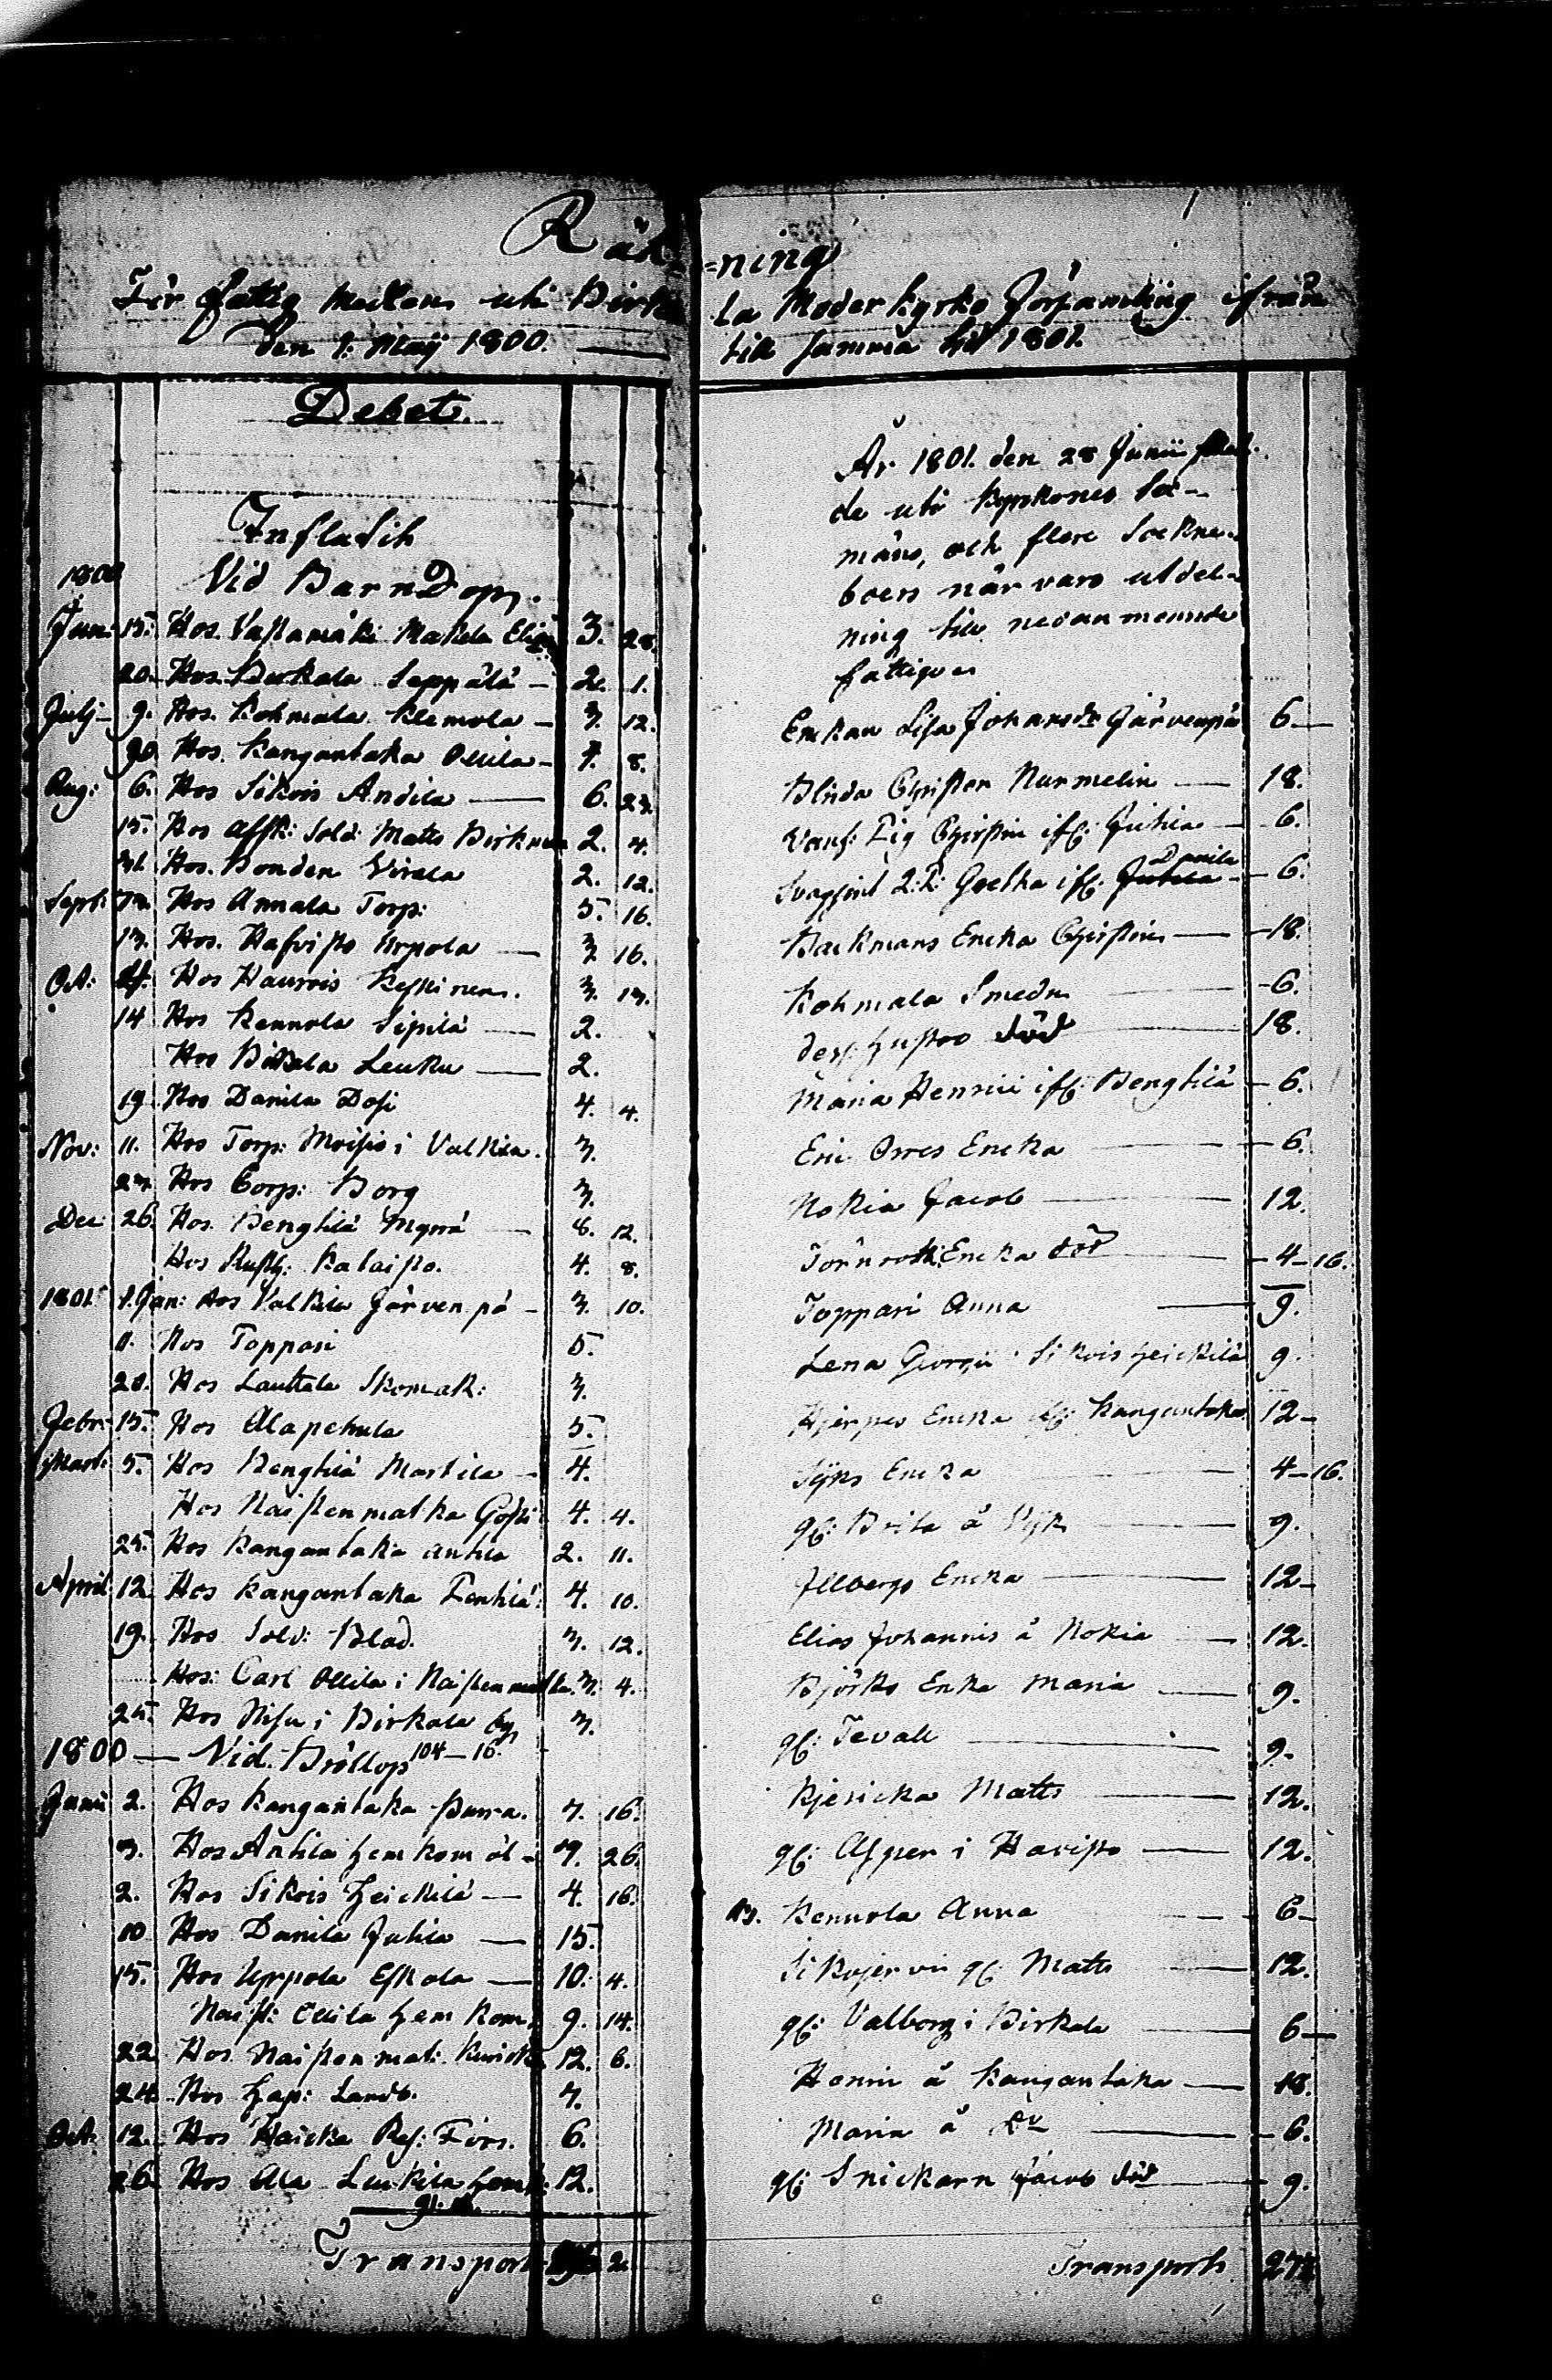 Räk=
För fattig Medlens uti Birka
Den 1. Maij 1800. —
Debet.
Influtit
1800 Vid BarnDop.
Jun: 15. Hos Vastamäki Makela Elias 3. 28.
20. Hos Birkala Seppälä — 2. 1.
Julj 9. Hos Kohmala Klemola — 3. 12.
30. Hos Kangantaka Ollila — 4. 8.
Aug: 6. Hos Sikois Andila — 6. 23.
15. Hos Affsk: Sold: Matts Birkman 2. 4.
31. Hos Bonden Virala 2. 12.
Sept: Hos Annala Torp: 5. 16.
13. Hos Hafvisto Urpola — 3. 16.
Oct: Hos Haurois Keskinen. 3. 13.
14 Hos Kennola Sipilä — 2.
Hos Birkala Leuku — 2.
19 Hos Danila Dosi 4. 4.
Nov: 11. Hos Torp: Moisio i Valkila. 3.
23. Hos Corp: Borg 3.
Dec: 26. Hos Bengtilä Myrrä — 8. 12.
Hos Kalaisto. 4. 8.
1801. 1. Jan: Hos Valkila Järvenpä — 3. 10.
11. Hos Toppari 5.
20. Hos Lauttala Skomak: 3.
Febr: 15. Hos Alapehula 5.
Mart: 5. Hos Bengtilä Martila — 4.
Hos Naistenmatka Goski 4. 4.
25. Hos Kangantaka Antila 2. 11.
April 12. Hos Kangantaka Penttilä 4. 10.
19. Hos Sold: Blad. 3. 12.
Hos: Carl Ollila i Naistenmatka. 3. 4.
25. Hos Nisu i Birkala by 3.
1800 — Vid Bröllop 104—16.
Junii 2. Hos Kangantaka Purra. 7. 16.
3. Hos Antila hemkom öl — 7. 26.
2. Hos Sikois Heickilä — 4. 16.
10 Hos Danila Juhila — 15.
15. Hos Urpola Eskola — 10. 4.
Naist: Ollila hem kom: 9. 14.
22 Hos Naistenmat: 12. 6.
24. Hos Landb. 7.
Oct: 12. Hos Haicka 6.
26 Hos Ala Liukila 12.
Transport 2.
=ning
la Moderkyrko Församling ifrån
till samma tid 1801.
År 1801. den 28 Junii
de uti Kyrkones Sex-
mäns, och flere Sockne-
boers när varo utdel-
ning till nedannemnde
fattige
Enkan Lisa Johansdr Järvenpää 6—
Blinda Christer Nurmelin — 18.
Pig Christin ifr: Juhila — 6.
Greta ifr: Danila — 6.
Backmans Encka Christin — 18.
Kohmala Smedn — 6.
dess Hustro död — 18.
Maria Henrici ifr: Bengtilä — 6.
Eric Orres Encka — 6.
Nokia Jacob — 12.
Törnroth: Encka död — 4—16.
Toppari Anna — 9.
Lena Georgii Sikois Heickilä 9.
Hjerpes Encka ifr: Kangantaka 12—
Sijks Encka — 4—16.
gl: Brita å — 9.
Jllbergs Encka — 12—
Elias Johannis å Nokia — 12.
Björks Enka Maria — 9.
gl: Tevall — 9.
Kjericka Matts — 12.
gl: Asper i Havisto — 12.
Kennola Anna — 6—
Sikojervi gl: Matts — 12.
gl: Valborg i Birkala — 6—
Henric å Kangantaka — 18.
Maria å — 6.
gl: Snickarn Jacob död — 9.
Transport